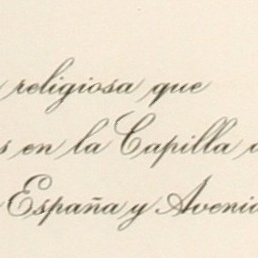 religiosa que
en la Capilla
España y Avenid